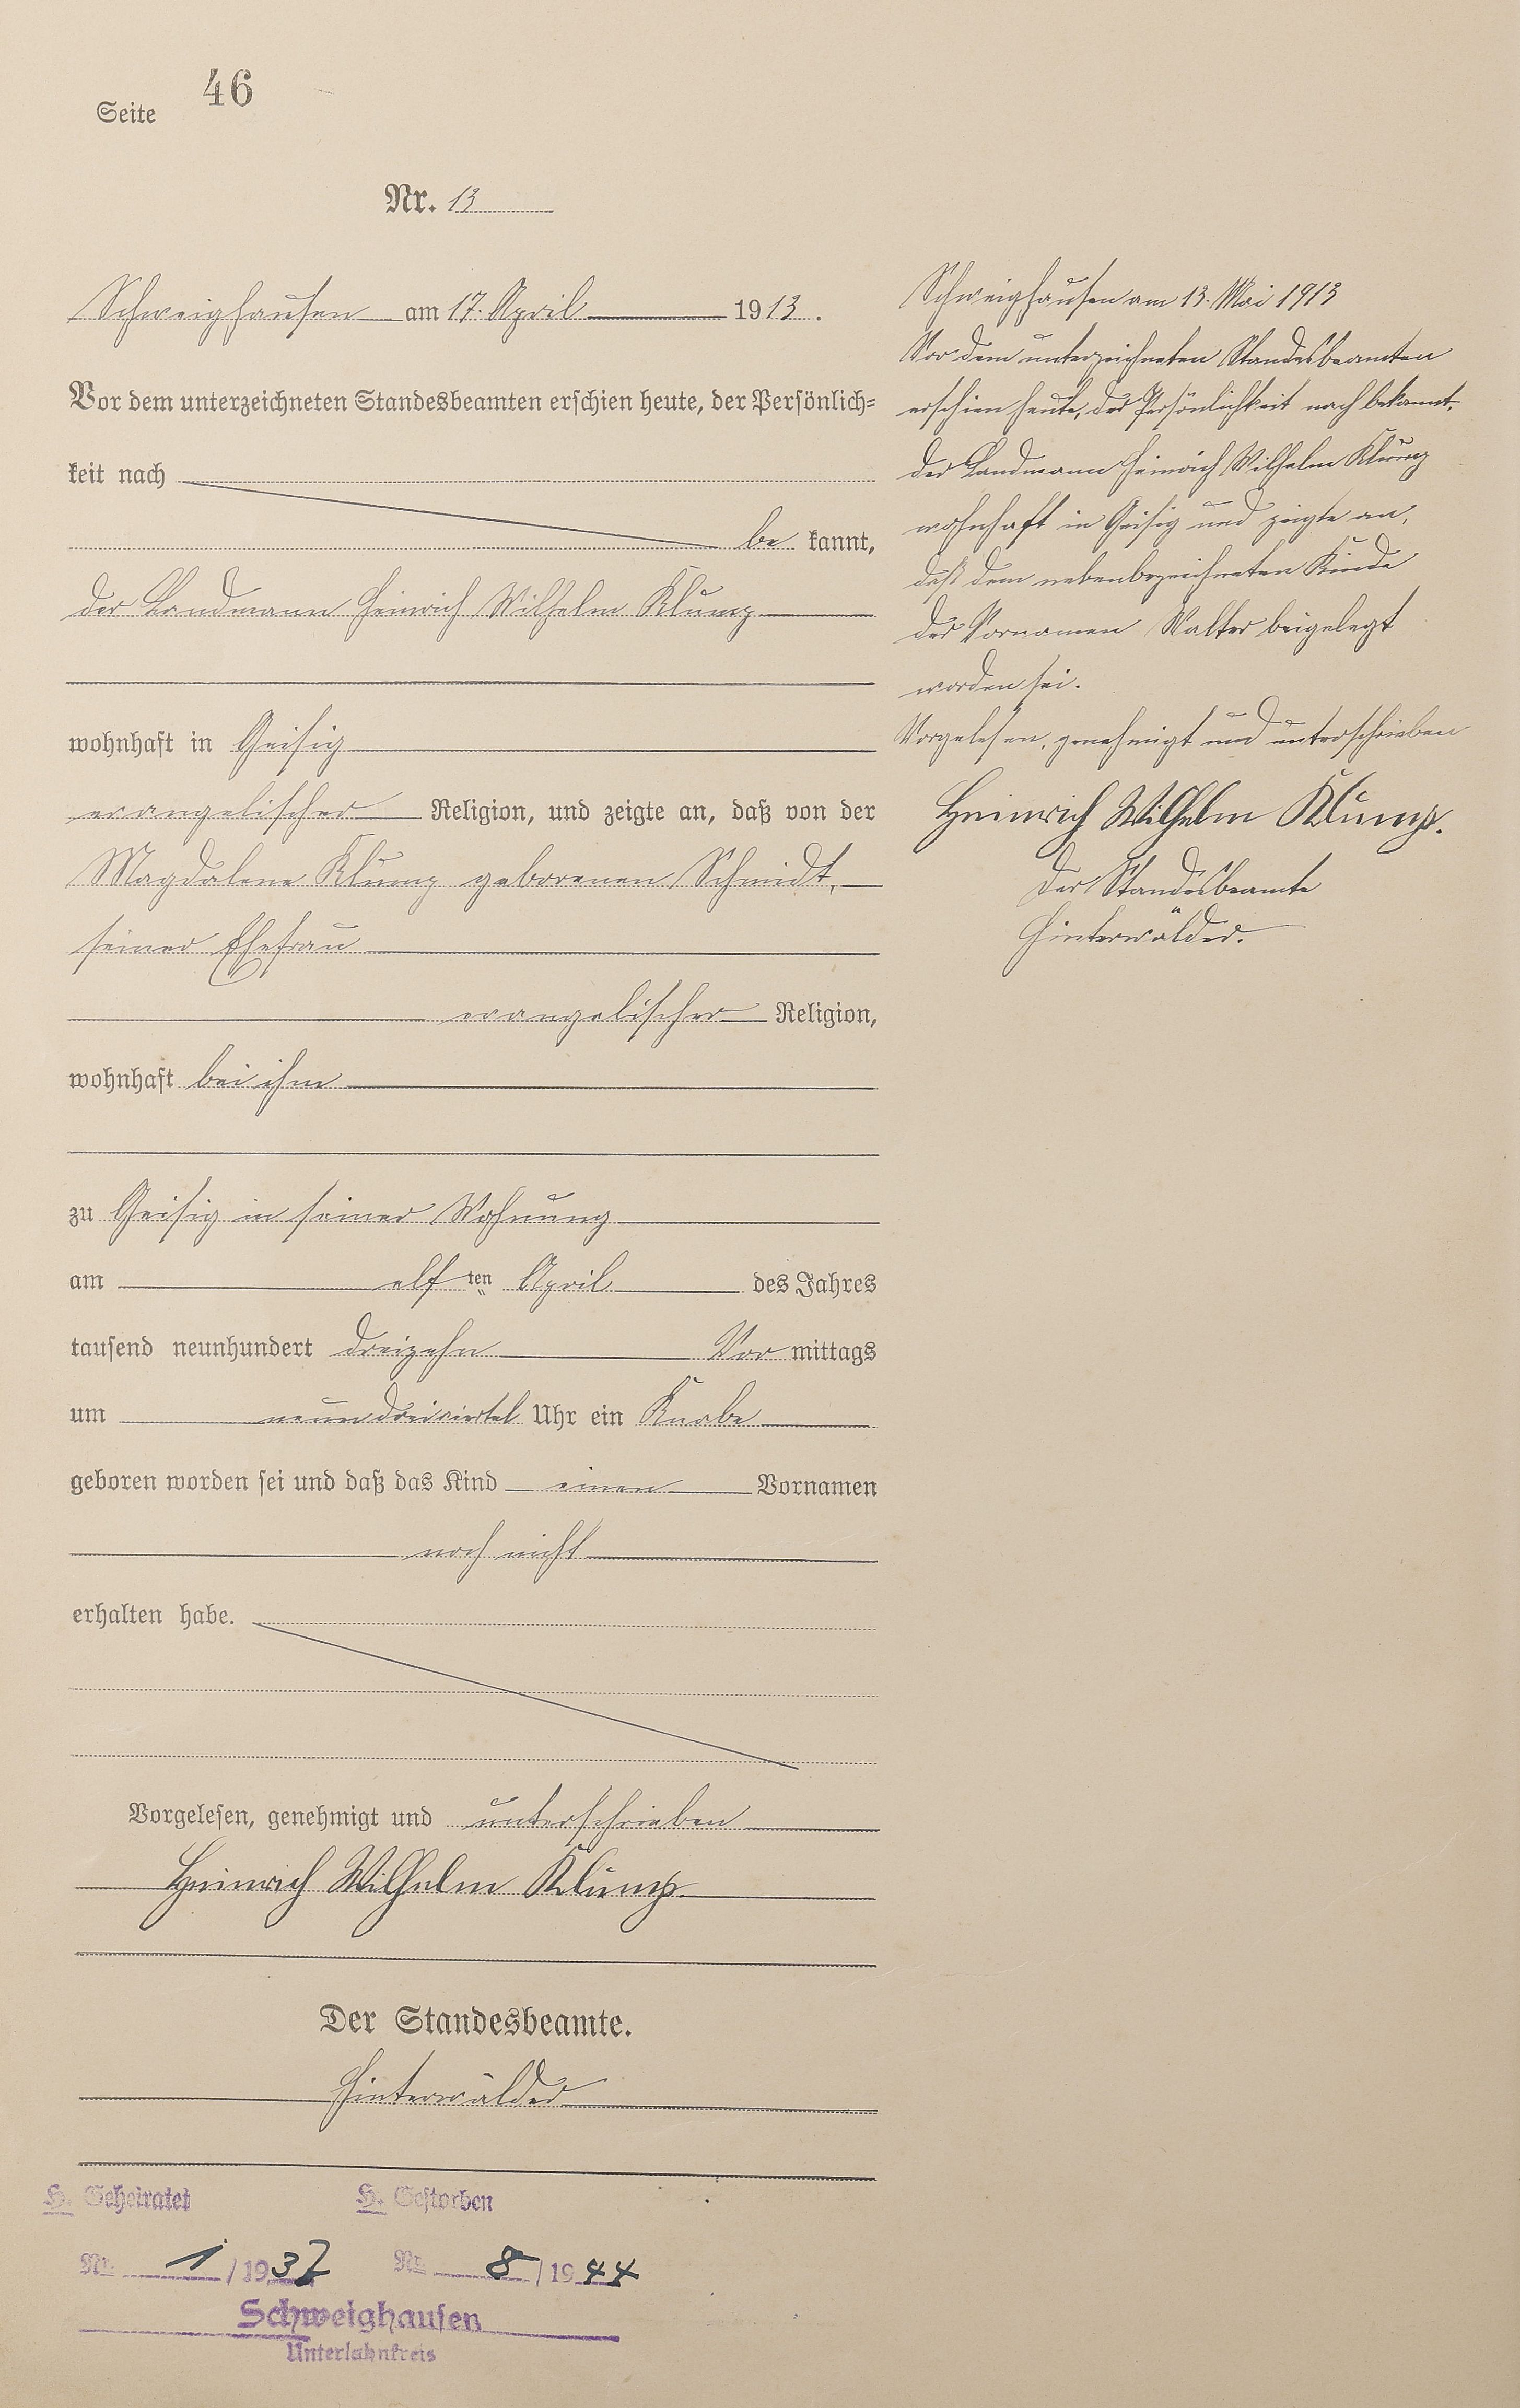 Seite 46
Nr. 13
Schweighausen am 17. April 1913.
Vor dem unterzeichneten Standesbeamten erschien heute, der Persönlich=
keit nach
be kannt,
der Landmann Heinrich Wilhelm Klump
wohnhaft in Geisig
evangelischer Religion, und zeigte an, daß von der
Magdalene Klump geborenen Schmidt,
seiner Ehefrau
evangelischer Religion,
wohnhaft bei ihm
zu Geisig in seiner Wohnung
am elf ten April des Jahres
tausend neunhundert dreizehn Vor mittags
um neun dreiviertel Uhr ein Knabe
geboren worden sei und daß das Kind einen Vornamen
noch nicht
erhalten habe.
Vorgelesen, genehmigt und unterschrieben
Heinrich Wilhelm Klump.
Der Standesbeamte.
Hinterwälder
H. Geheiratet H. Gestorben
Nr. 1 / 1937 Nr. 8 / 1944
Schweighausen
Unterlahnkreis
Schweighausen am 13. Mai 1913
Vor dem unterzeichneten Standesbeamten
erschien heute, der Persönlichkeit nach bekannt,
der Landmann Heinrich Wilhelm Klump
wohnhaft in Geisig und zeigte an,
daß dem nebenbezeichneten Kinde
der Vornamen Walter beigelegt
worden sei.
Vorgelesen, genehmigt und unterschrieben
Heinrich Wilhelm Klump.
Der Standesbeamte
Hinterwälder.